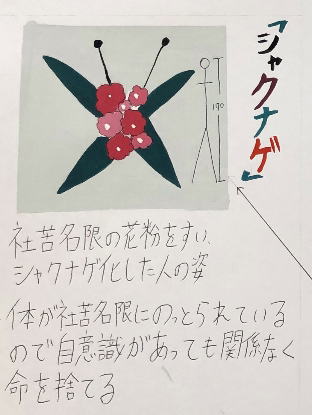 「シャクナゲ」
190
社苦名限の花粉をすい、
シャクナゲ化した人の姿
体が社苦名限にのっとられている
ので自意識があっても関係なく
命を捨てる